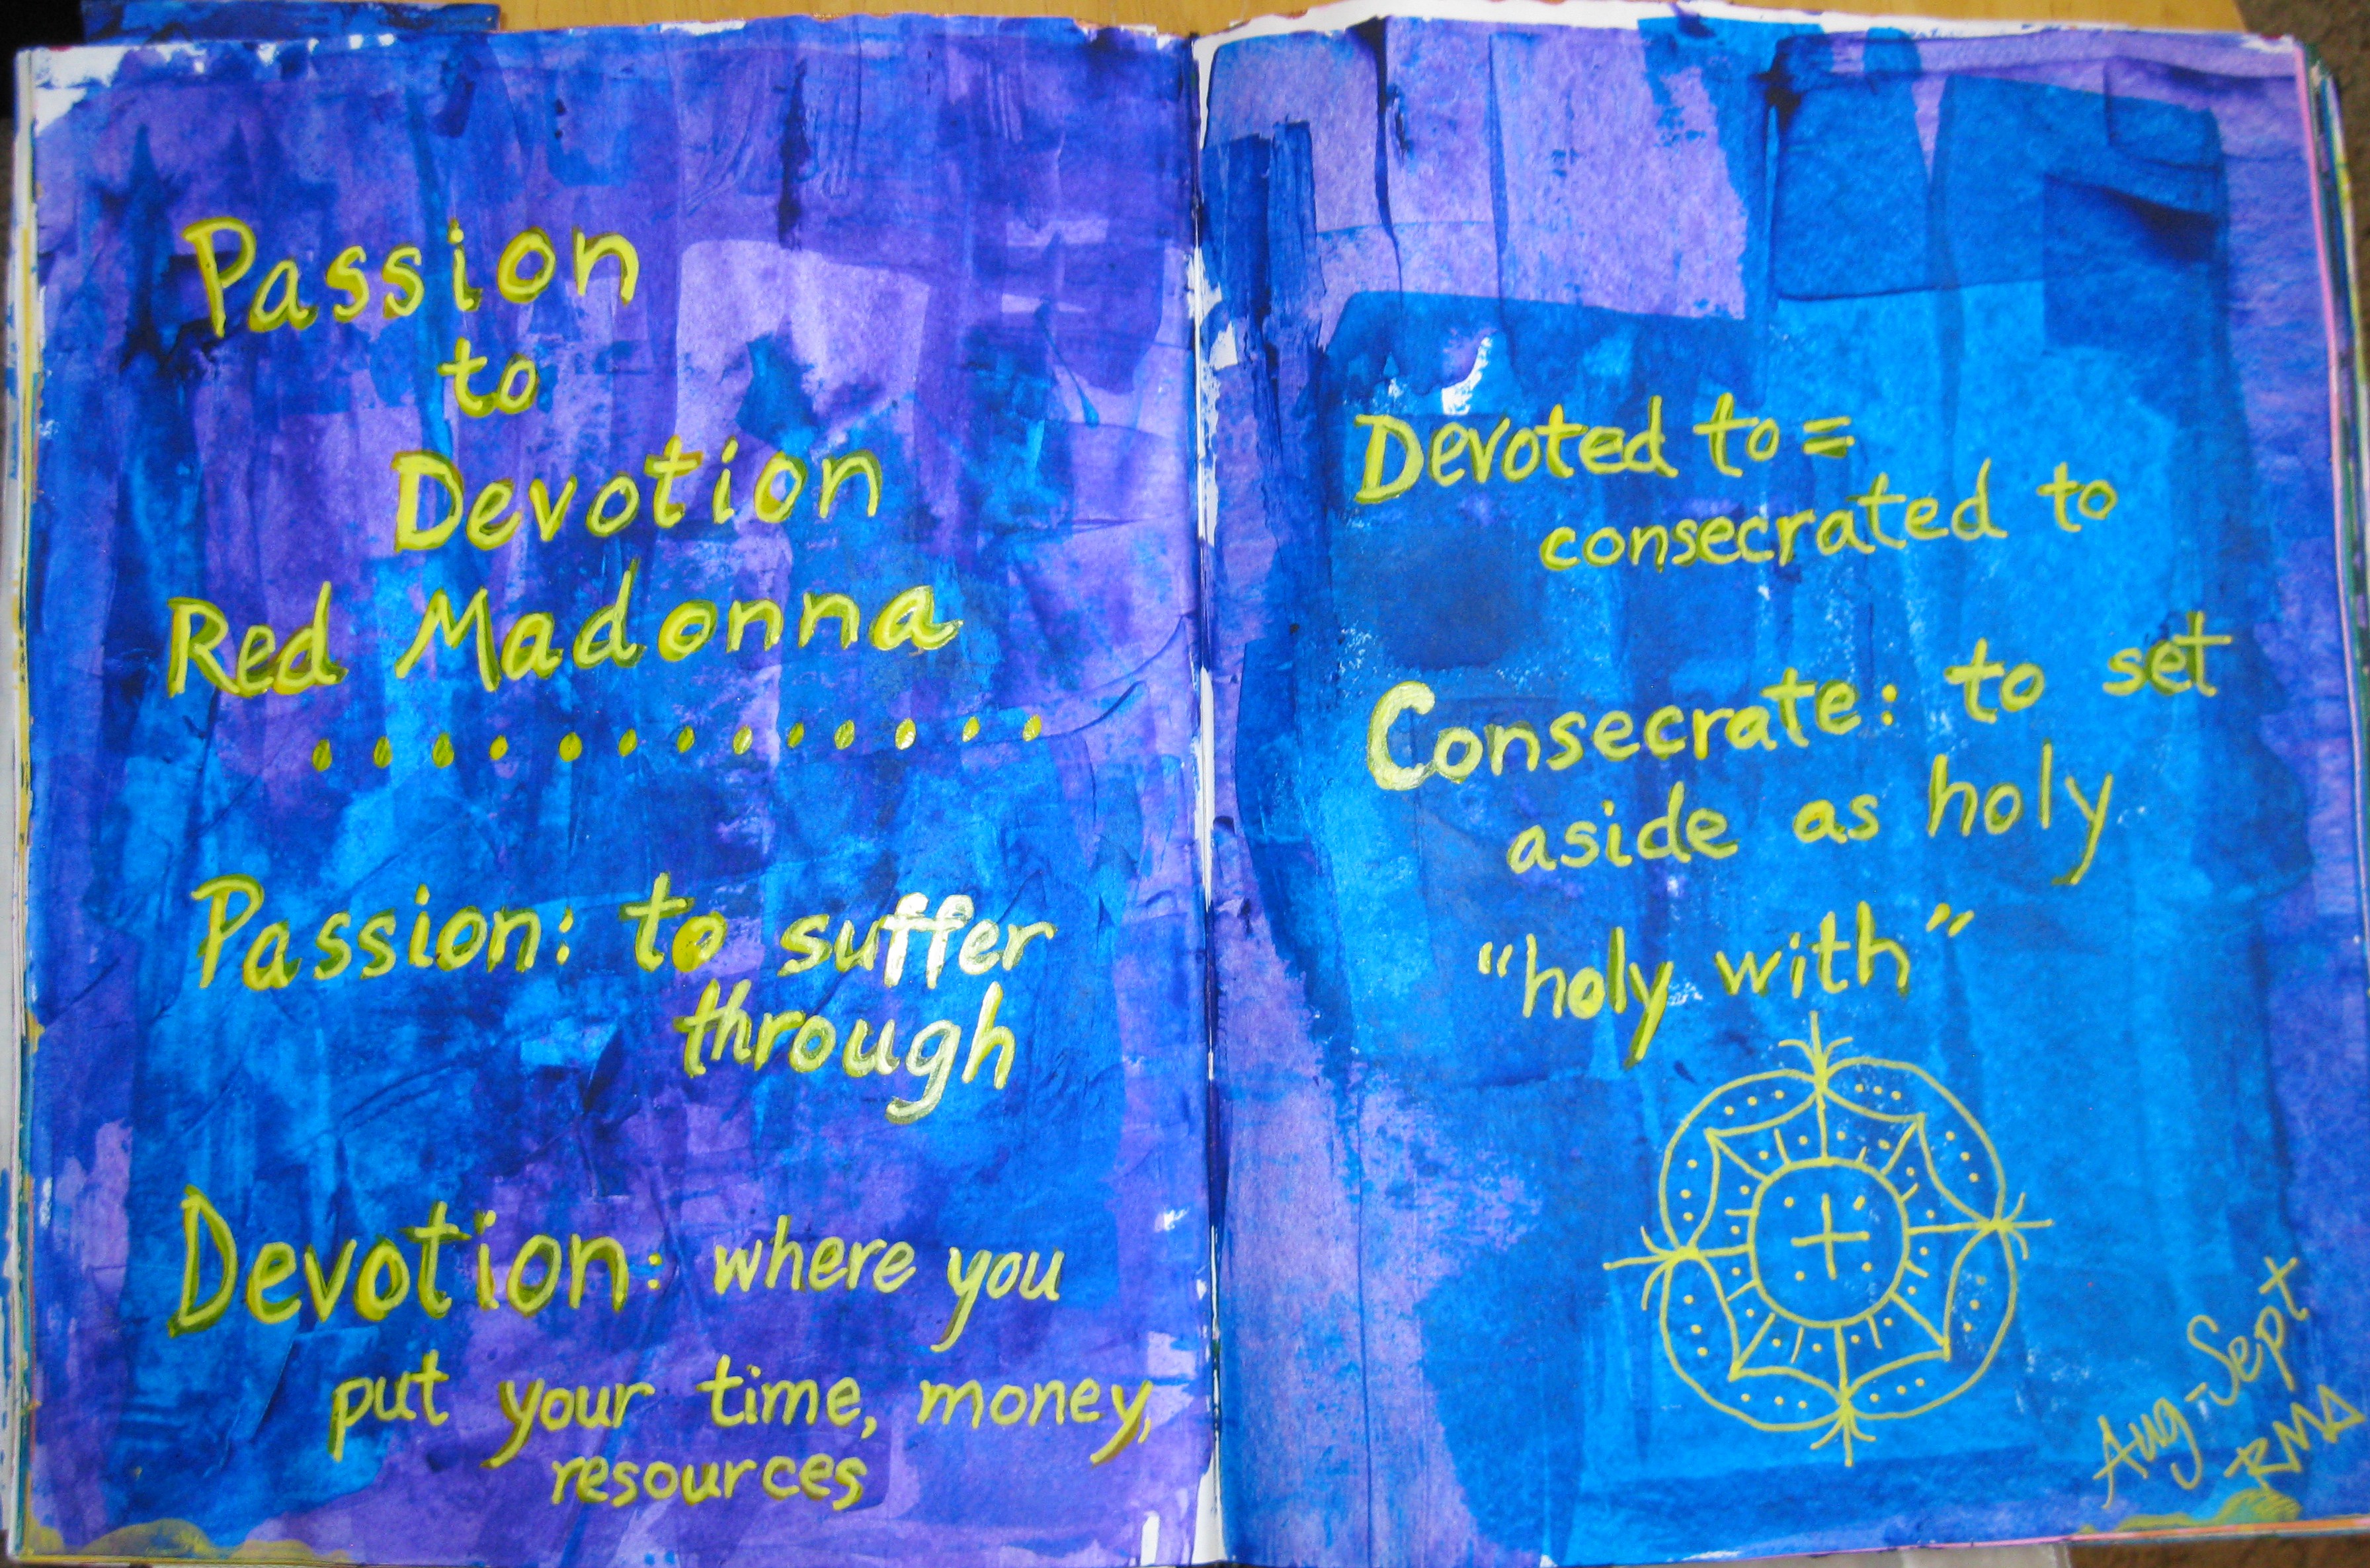 Passion
to
Devotion
Red Madonna
Passion: to suffer
through
Devotion: where you
put your time, money,
resources
Devoted to =
consecrated to
Consecrate: to set
aside as holy
"holy with"
Aug-Sept
RMA